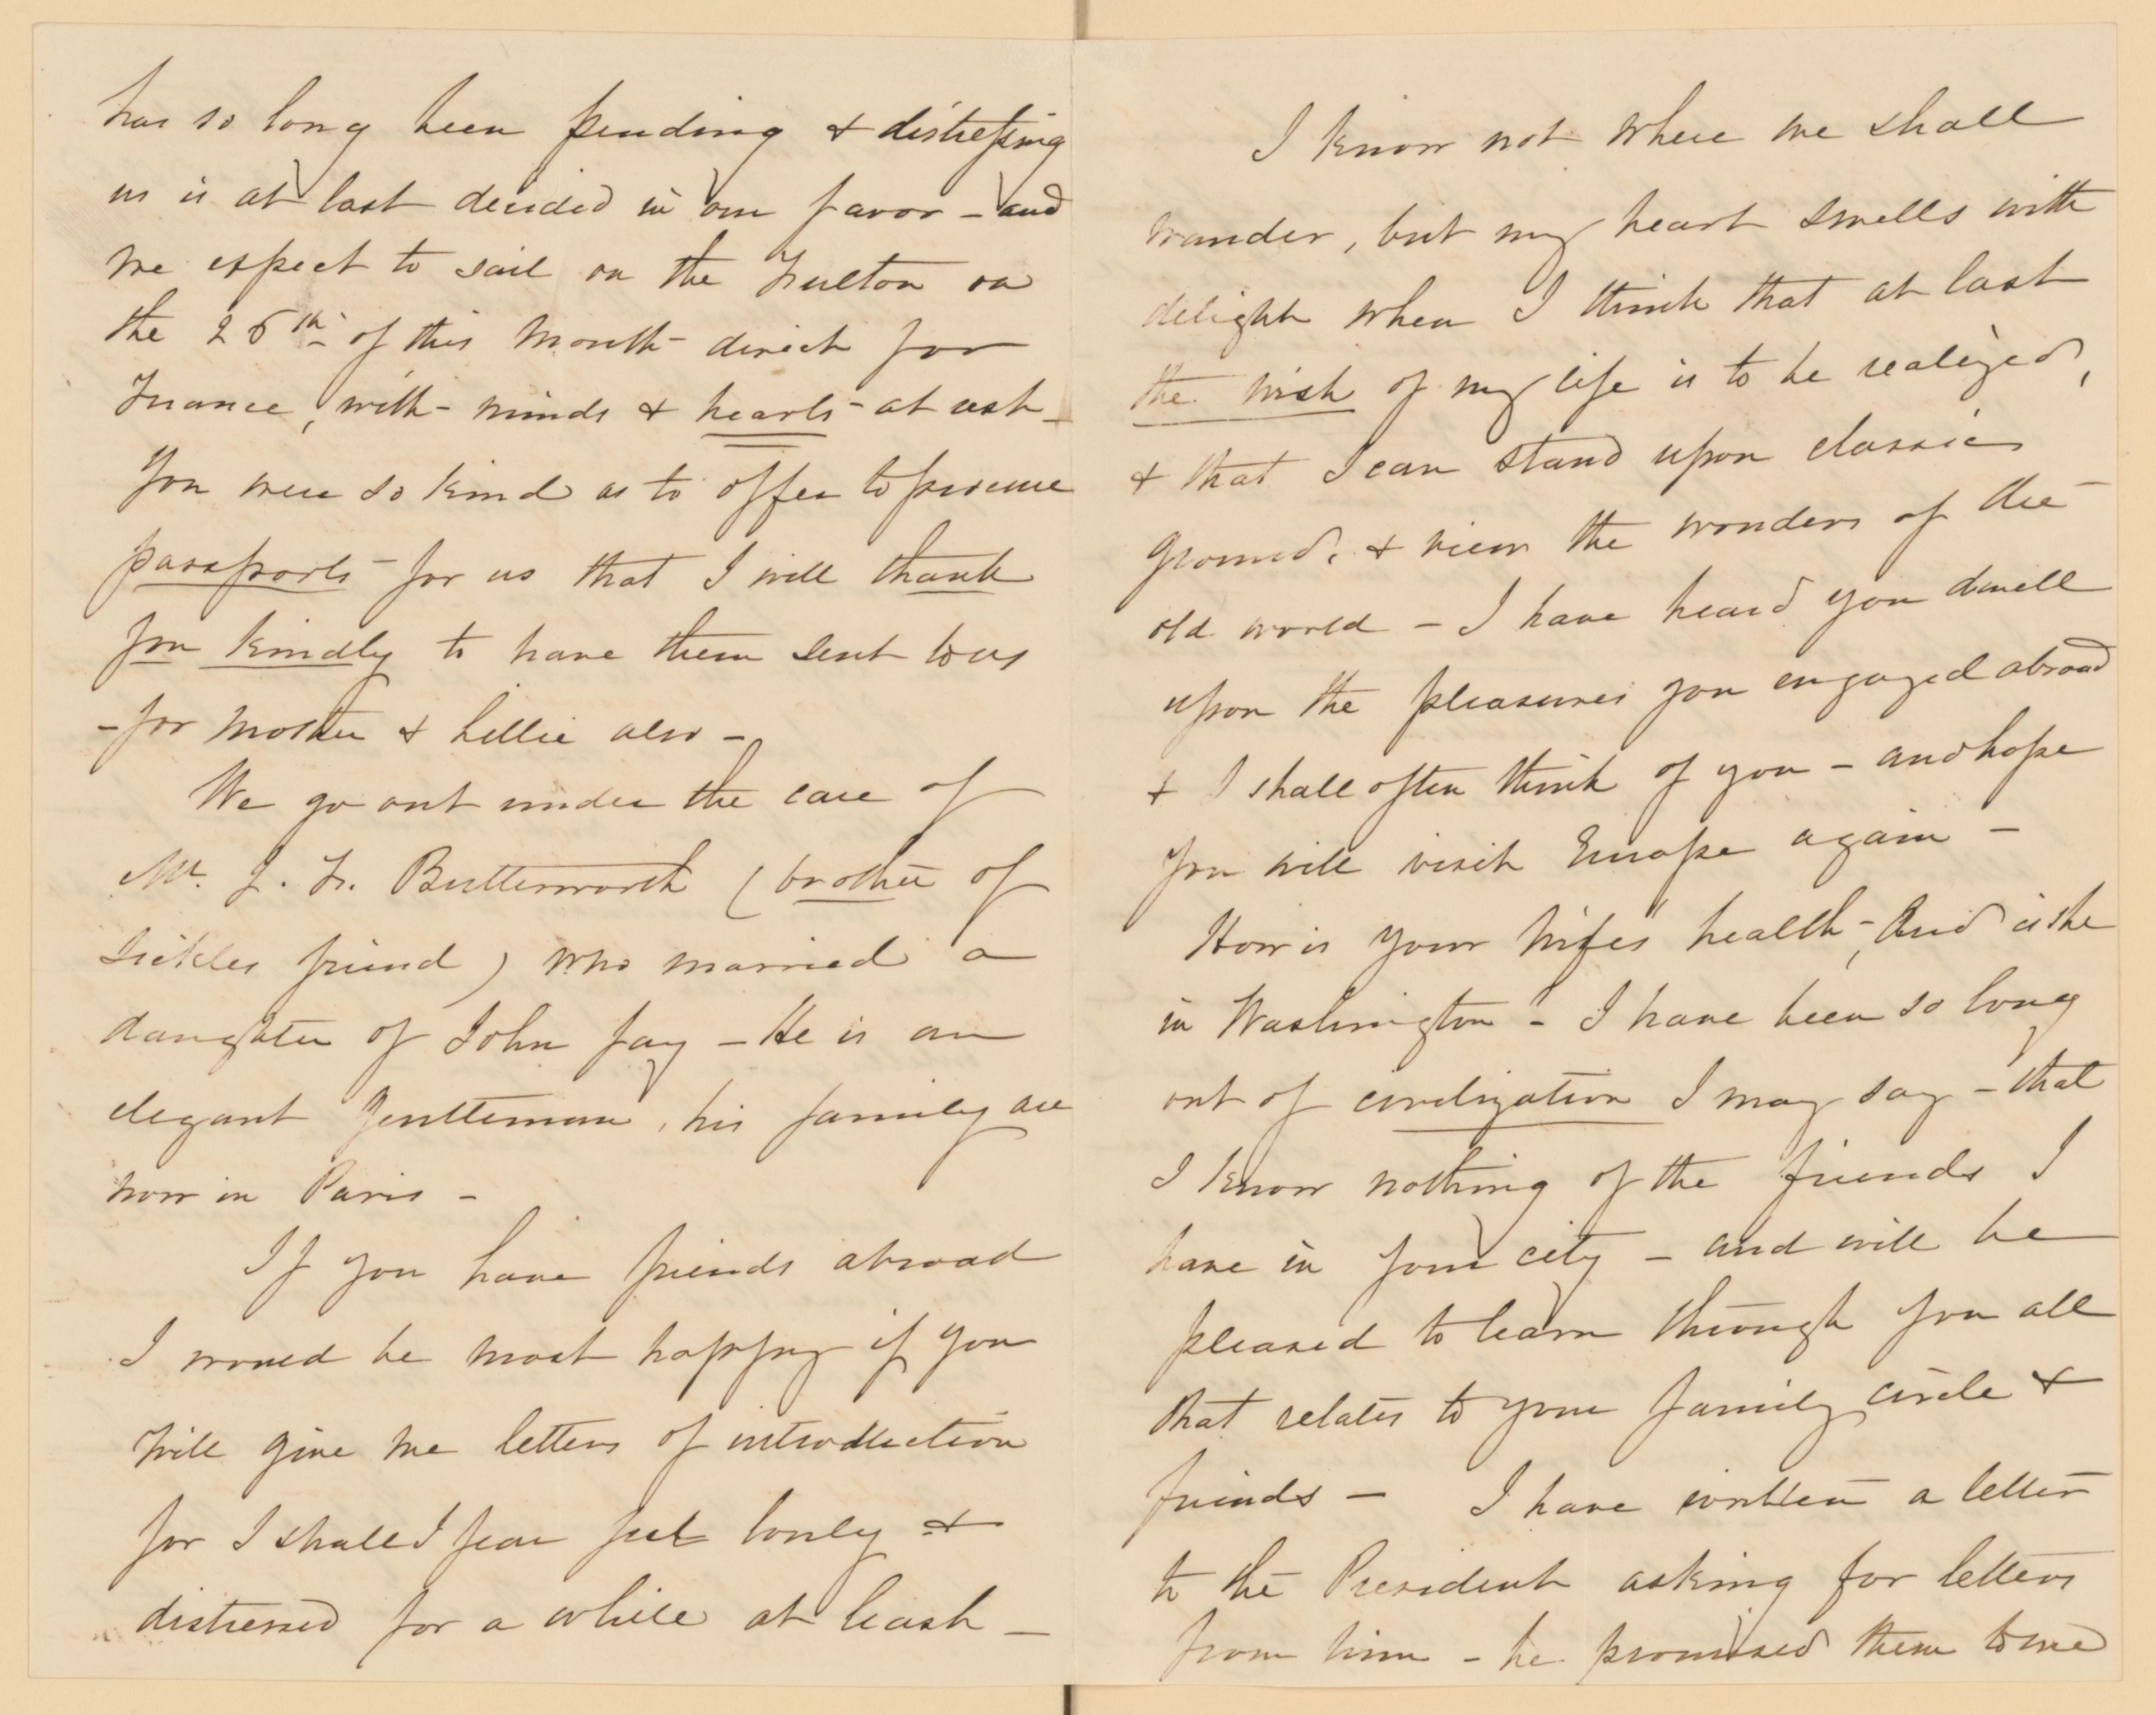 has so long been pending & distressing
us is at last decided in our favor – and
we expect to sail on the Fulton on
the 26th of this month – direct for
France, with – minds & hearts – at rest –
You were so kind as to offer to procure
passports – for us that I will thank
you kindly to have them sent to us
– for Mother & Lillie also –
We go out under the care of
Mr. J. F. Butterworth (brother of
Sickles friend) who married a
daughter of John Jay – He is an
elegant gentleman, his family are
now in Paris –
If you have friends abroad
I would be most happy if you
will give me letters of introduction
for I shall I fear feel lonely &
distressed for a while at least –
I know not where we shall
wander, but my heart swells with
delight when I think that at last
the wish of my life is to be realized,
& that I can stand upon classic
ground, & view the wonders of the
old world – I have heard you dwell
upon the pleasures you engaged abroad
& I shall often think of you – and hope
you will visit Europe again –
How is your wife's health –, And is she
in Washington – I have been so long
out of civilization I may say – that
I know nothing of the friends I
have in your city – and will be
pleased to learn through you all
that relates to your family circle &
friends – I have written a letter
to the President asking for letters
from him – he promised them to me